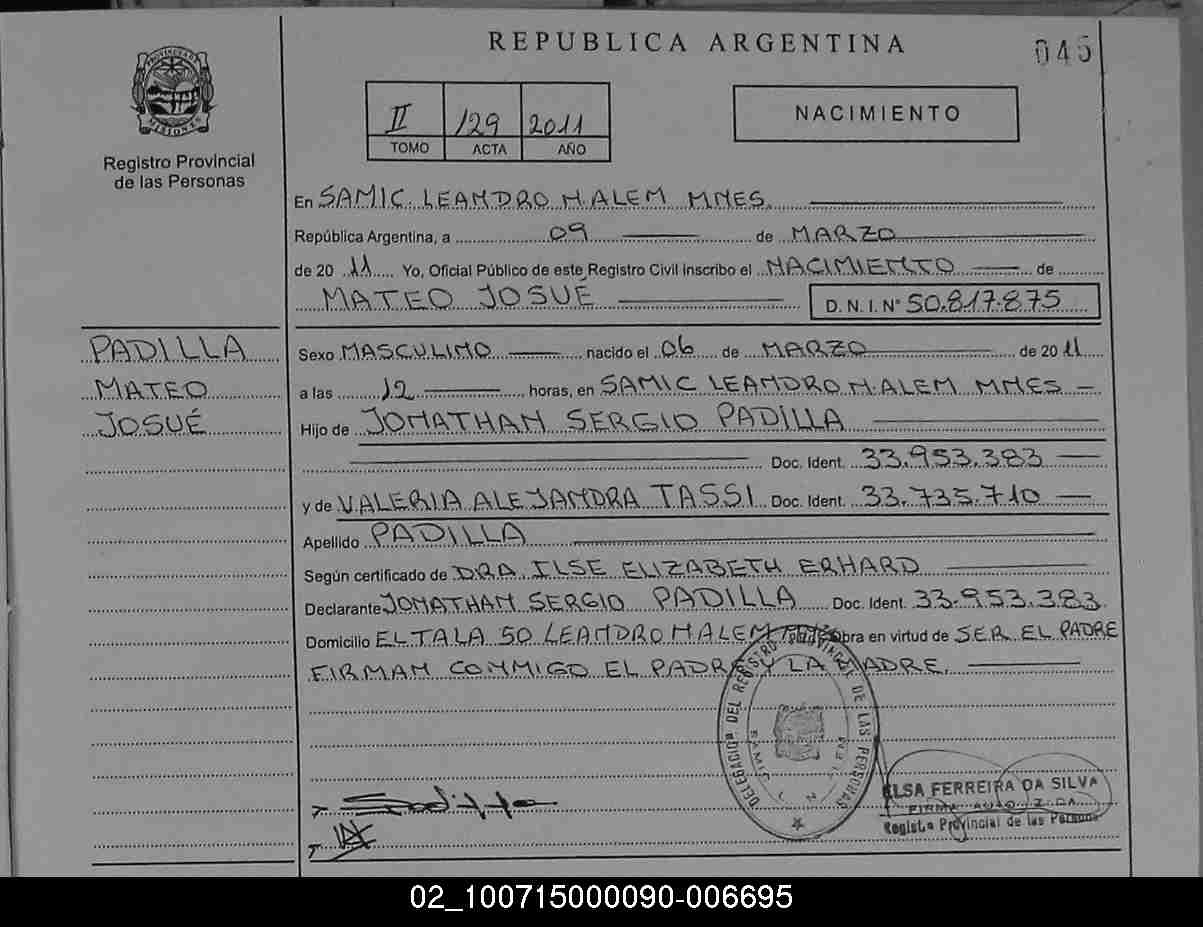 REPUBLICA ARGENTINA
045
PROVINCIA DE MISIONES
Registro Provincial
de las Personas
II 129 2011
TOMO ACTA AÑO
NACIMIENTO
En SAMIC. LEANDRO N. ALEM MNES.
República Argentina, a 09 de MARZO
de 20 11 Yo, Oficial Público de este Registro Civil inscribo el NACIMIENTO de
MATEO JOSUÉ D. N. I. N° 50.817.875
PADILLA
MATEO
JOSUÉ
Sexo MASCULINO nacido el 06 de MARZO de 20 11
a las 12 horas, en SAMIC LEANDRO N. ALEM MNES
Hijo de JONATHAN SERGIO PADILLA
Doc. Ident. 33.953.383
y de VALERIA ALEJANDRA TASSI Doc. Ident. 33.735.710
Apellido PADILLA
Según certificado de DRA ILSE ELIZABETH ERHARD
Declarante JONATHAN SERGIO PADILLA Doc. Ident. 33.953.383
Domicilio EL TALA 50 LEANDRO N ALEM Obra en virtud de SER EL PADRE
FIRMAN CONMIGO EL PADRE Y LA MADRE.
DELEGACION DEL REGISTRO PROVINCIAL DE LAS PERSONAS
SAMIC
ELSA FERREIRA DA SILVA
FIRMA AUTORIZADA
Registro Provincial de las Personas
02_100715000090-006695